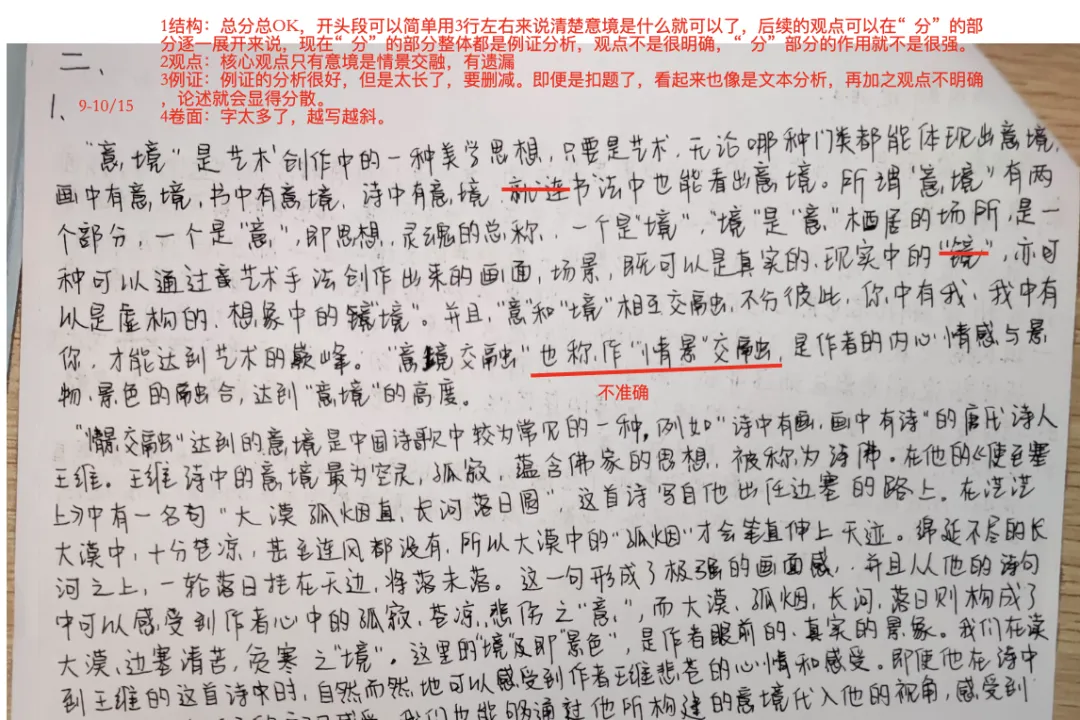 1结构：总分总OK，开头段可以简单用3行左右来说清楚意境是什么就可以了，后续的观点可以在“分”的部
分逐一展开来说，现在“分”的部分整体都是例证分析，观点不是很明确，“分”部分的作用就不是很强。
2观点：核心观点只有意境是情景交融，有遗漏
3例证：例证的分析很好，但是太长了，要删减。即便是扣题了，看起来也像是文本分析，再加之观点不明确
，论述就会显得分散。
4卷面：字太多了，越写越斜。
二、
9-10/15
1、
“意境”是艺术创作中的一种美学思想，只要是艺术，无论哪种门类都能体现出意境，
画中有意境，书中有意境，诗中有意境，就连书法中也能看出意境。所谓“意境”有两
个部分，一个是“意”，即思想、灵魂的总称，一个是“境”，“境”是“意”栖居的场所，是一
种可以通过艺术手法创作出来的画面，场景，既可以是真实的、现实中的“镜”，亦可
以是虚构的、想象中的“境”。并且，“意”和“境”相互交融，不分彼此，你中有我，我中有
你，才能达到艺术的巅峰。“意境交融”也称作“情景”交融，是作者的内心情感与景
物、景色的融合，达到“意境”的高度。
不准确
“情景交融”达到的意境是中国诗歌中较为常见的一种，例如“诗中有画，画中有诗”的唐代诗人
王维。王维诗中的意境最为空灵，孤寂，蕴含佛家的思想，被称为诗佛。在他的《使至塞
上》中有一名句“大漠孤烟直，长河落日圆”这首诗写自他出任边塞的路上。在茫茫
大漠中，十分苍凉，甚至连风都没有，所以大漠中的“孤烟”才会笔直伸上天边。绵延不尽的长
河之上，一轮落日挂在天边，将落未落。这一句形成了极强的画面感，并且从他的诗句
中可以感受到作者心中的孤寂、苍凉、悲伤之“意”，而大漠、孤烟、长河、落日则构成了
大漠、边塞清苦、贫寒之“境”。这里的“境”及即“景色”，是作者眼前的、真实的景象。我们在读
到王维的这首诗中时，自然而然地可以感受到作者王维悲苍的心情和感受。即使他在诗中
我们也能够通过他所构建的意境代入他的视角，感受到